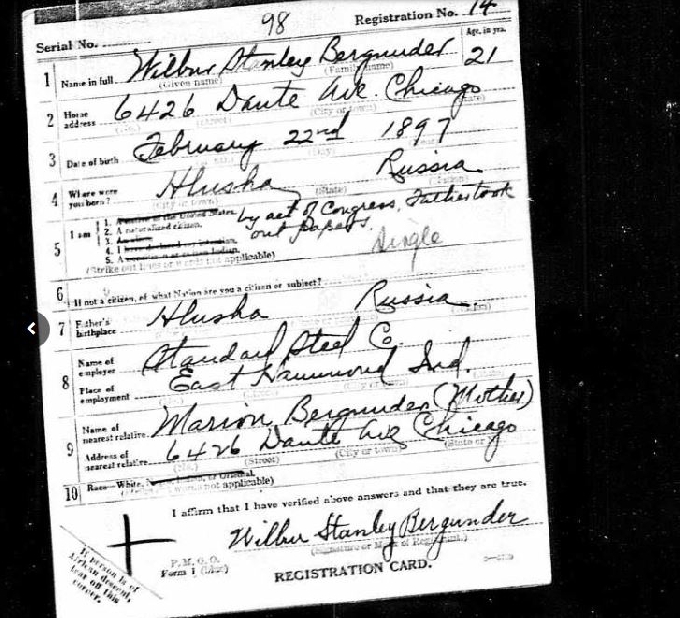 98
Serial No. Registration No. 14
1 Name in full Wilbur Stanley Bergunder Age, in yrs. 21
(Given name) (Family name)
2 Home address 6426 Dante Ave Chicago
(Street) (City or town) (State)
3 Date of birth February 22nd 1897
4 Where were you born? Hlusha Russia
(City or town) (State)
5 I am
1. A of the United States
2. A naturalized citizen, by act of Congress, Father took
3. An alien out papers.
4. I have declared my intention Single
5. A
(Strike out lines or words not applicable)
6 If not a citizen, of what Nation are you a citizen or subject?
7 Father's birthplace Hlusha Russia
8 Name of employer Standard Steel Co
Place of employment East Hammond Ind.
9 Name of nearest relative Marion Bergunder (Mother)
Address of nearest relative 6426 Dante Ave Chicago
(Street) (City or town)
10 Race—White, or Oriental
(words not applicable)
I affirm that I have verified above answers and that they are true.
Wilbur Stanley Bergunder
(Signature or Mark of Registrant.)
P. M. G. O.
Form 1 (blue) REGISTRATION CARD.
If person is of
African descent,
tear off this
corner.